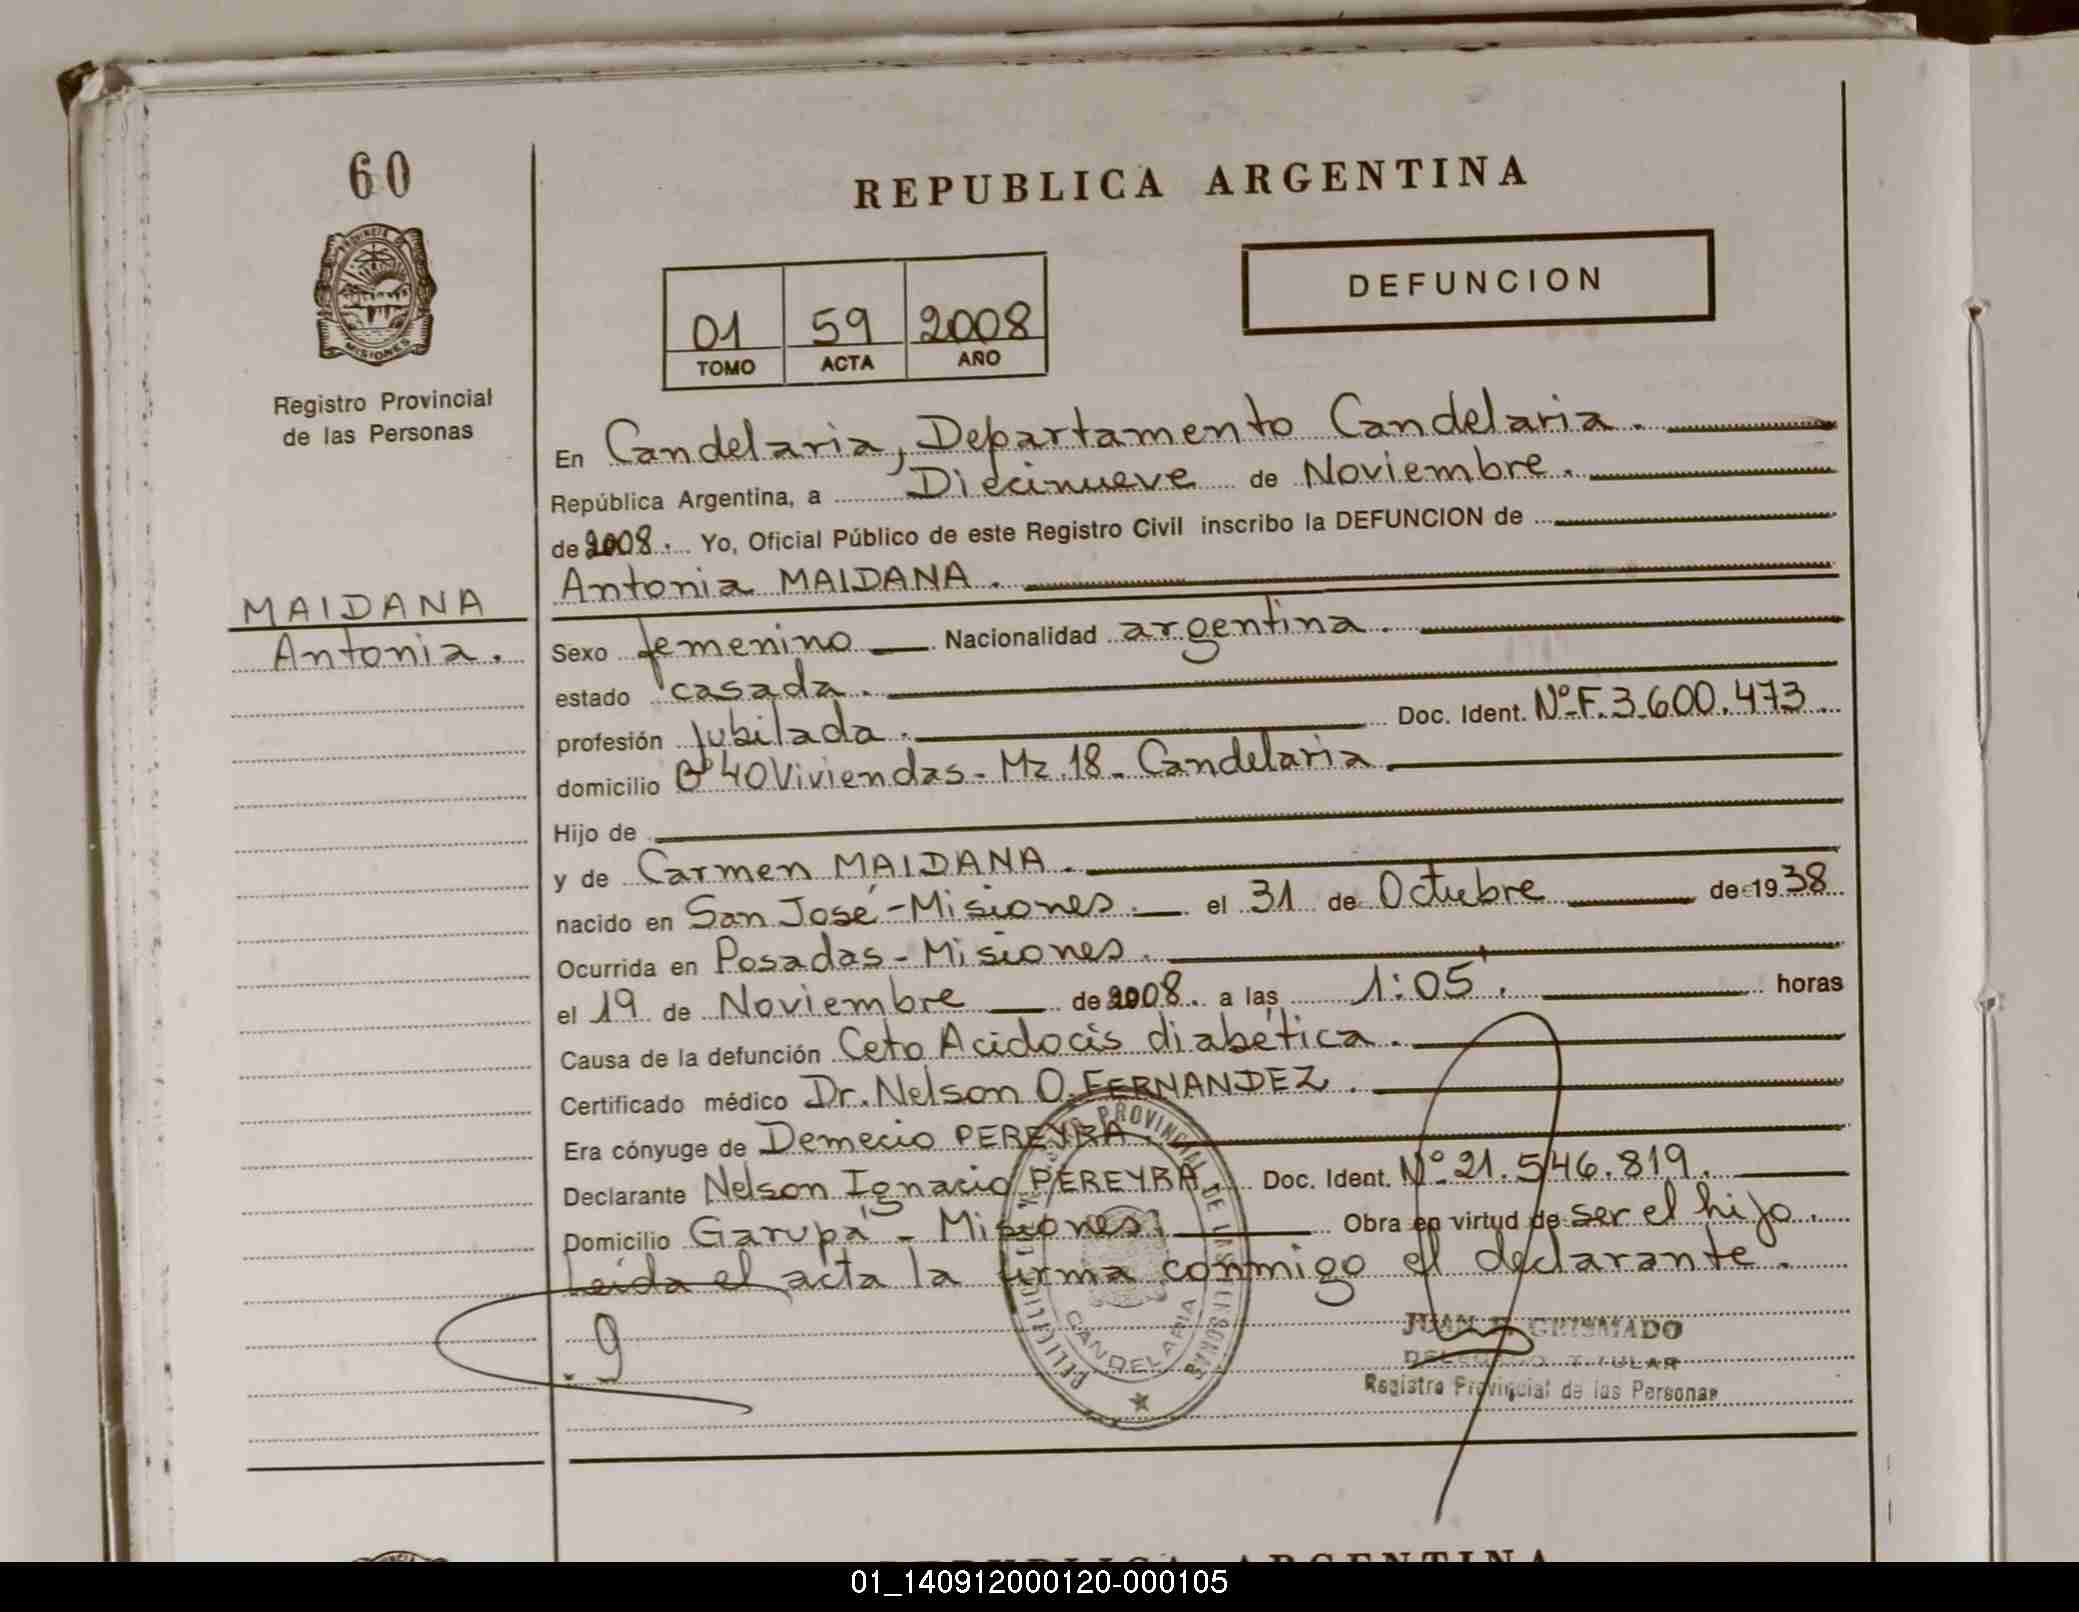 60
REPUBLICA ARGENTINA
DEFUNCION
01 59 2008
TOMO ACTA AÑO
PROVINCIA DE
MISIONES
Registro Provincial
de las Personas
MAIDANA
Antonia.
En Candelaria, Departamento Candelaria.
República Argentina, a Diecinueve de Noviembre.
de 2008. Yo, Oficial Público de este Registro Civil inscribo la DEFUNCION de
Antonia MAIDANA.
Sexo femenino Nacionalidad argentina.
estado casada.
profesión Jubilada. Doc. Ident. Nº F. 3.600.473
domicilio Bº 40 Viviendas - Mz. 18 - Candelaria
Hijo de
y de Carmen MAIDANA.
nacido en San José - Misiones. el 31 de Octubre de 1938
Ocurrida en Posadas - Misiones.
el 19 de Noviembre de 2008. a las 1:05'. horas
Causa de la defunción Ceto Acidocis diabética.
Certificado médico Dr. Nelson O. FERNANDEZ.
Era cónyuge de Demecio PEREYRA.
Declarante Nelson Ignacio PEREYRA. Doc. Ident. Nº 21.546.819.
Domicilio Garupá - Misiones. Obra en virtud de ser el hijo.
Leída el acta la firma conmigo el declarante.
PROVINCIAL DE LAS PERSONAS
CANDELARIA
JUAN GRISMADO
DELEGADO TITULAR
Registro Provincial de las Personas
REPUBLICA ARGENTINA
01_140912000120-000105